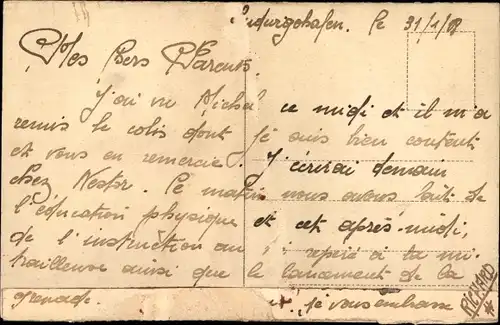 Ludwigshafen, le 31/1/
Mes chers Parents.
J'ai vu Michel ce midi et il m'a
remis le colis dont je suis bien content
et vous en remercie. J'écrirai demain
chez Nestor. Ce matin nous avons fait de
l'éducation physique et cet après-midi,
de l'instruction au repéré à la mi-
trailleuse ainsi que le lancement de la
grenade. je vous embrasse
RICHARD